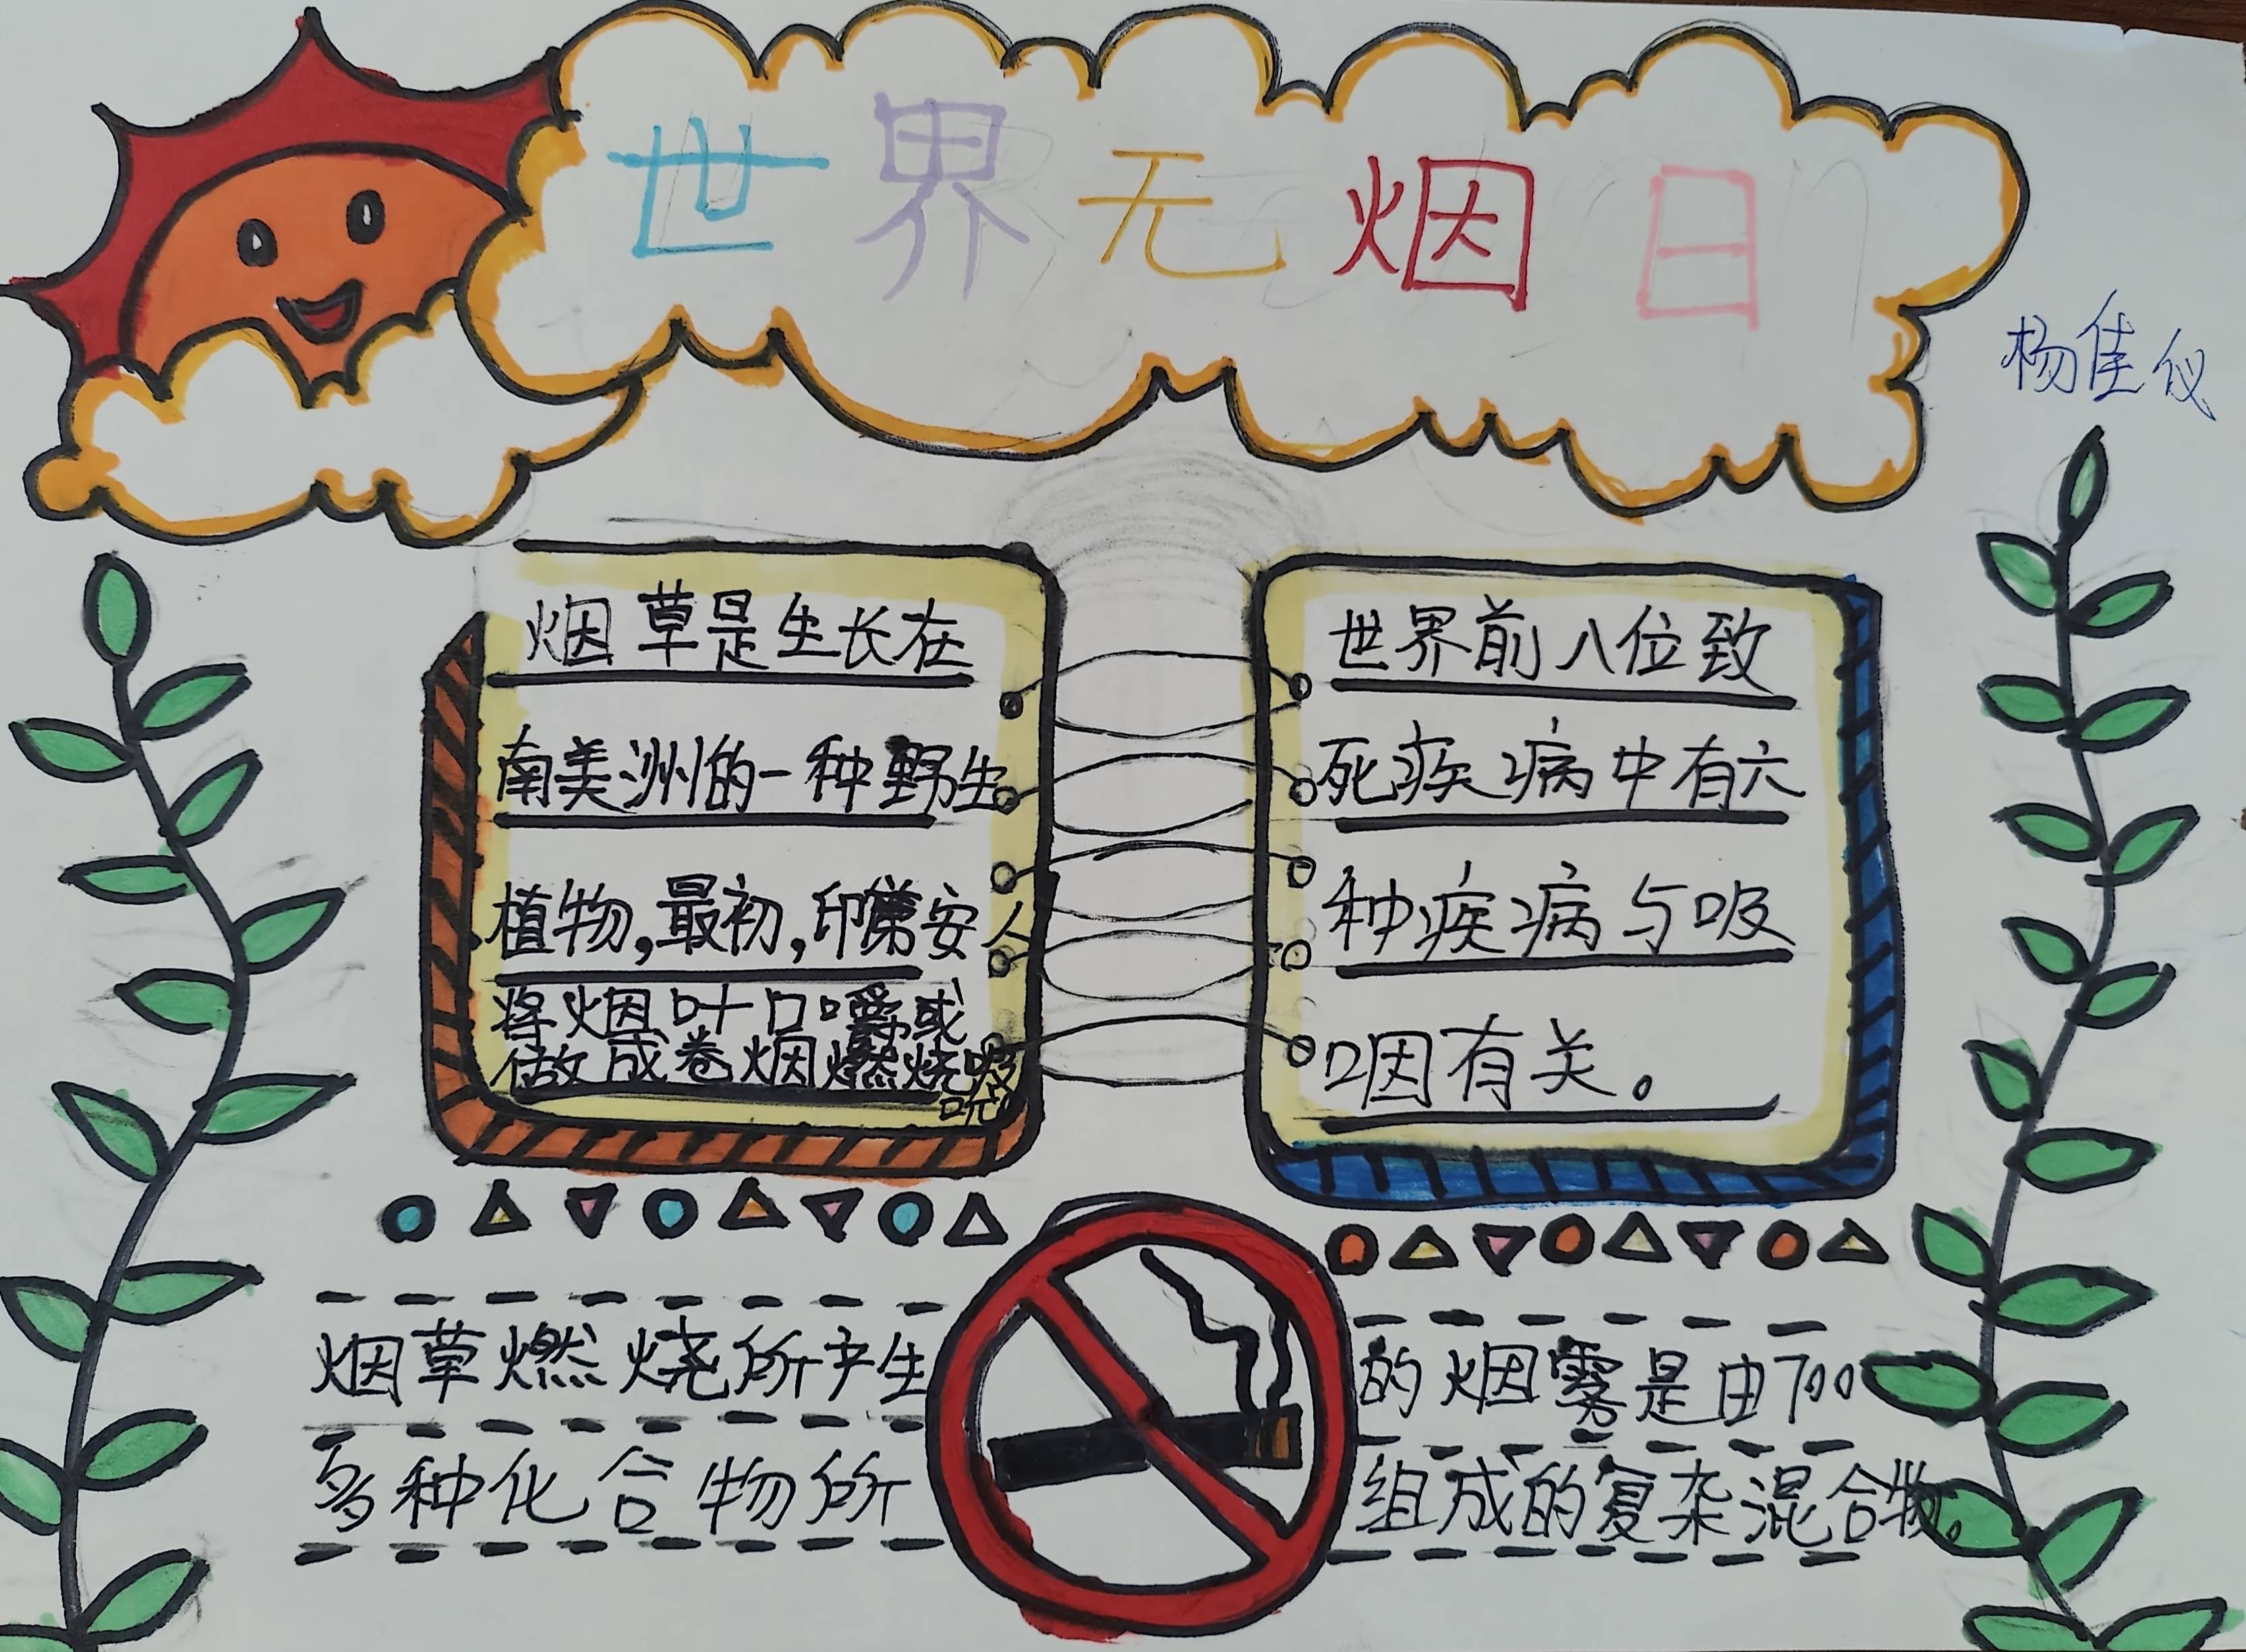 世界无烟日
杨佳仪
烟草是生长在
南美洲的一种野生
植物,最初,印第安人
将烟叶口嚼或
做成卷烟燃烧吸
吮
世界前八位致
死疾病中有六
种疾病与吸
咽有关。
烟草燃烧所产生的烟雾是由7000
多种化合物所组成的复杂混合物。